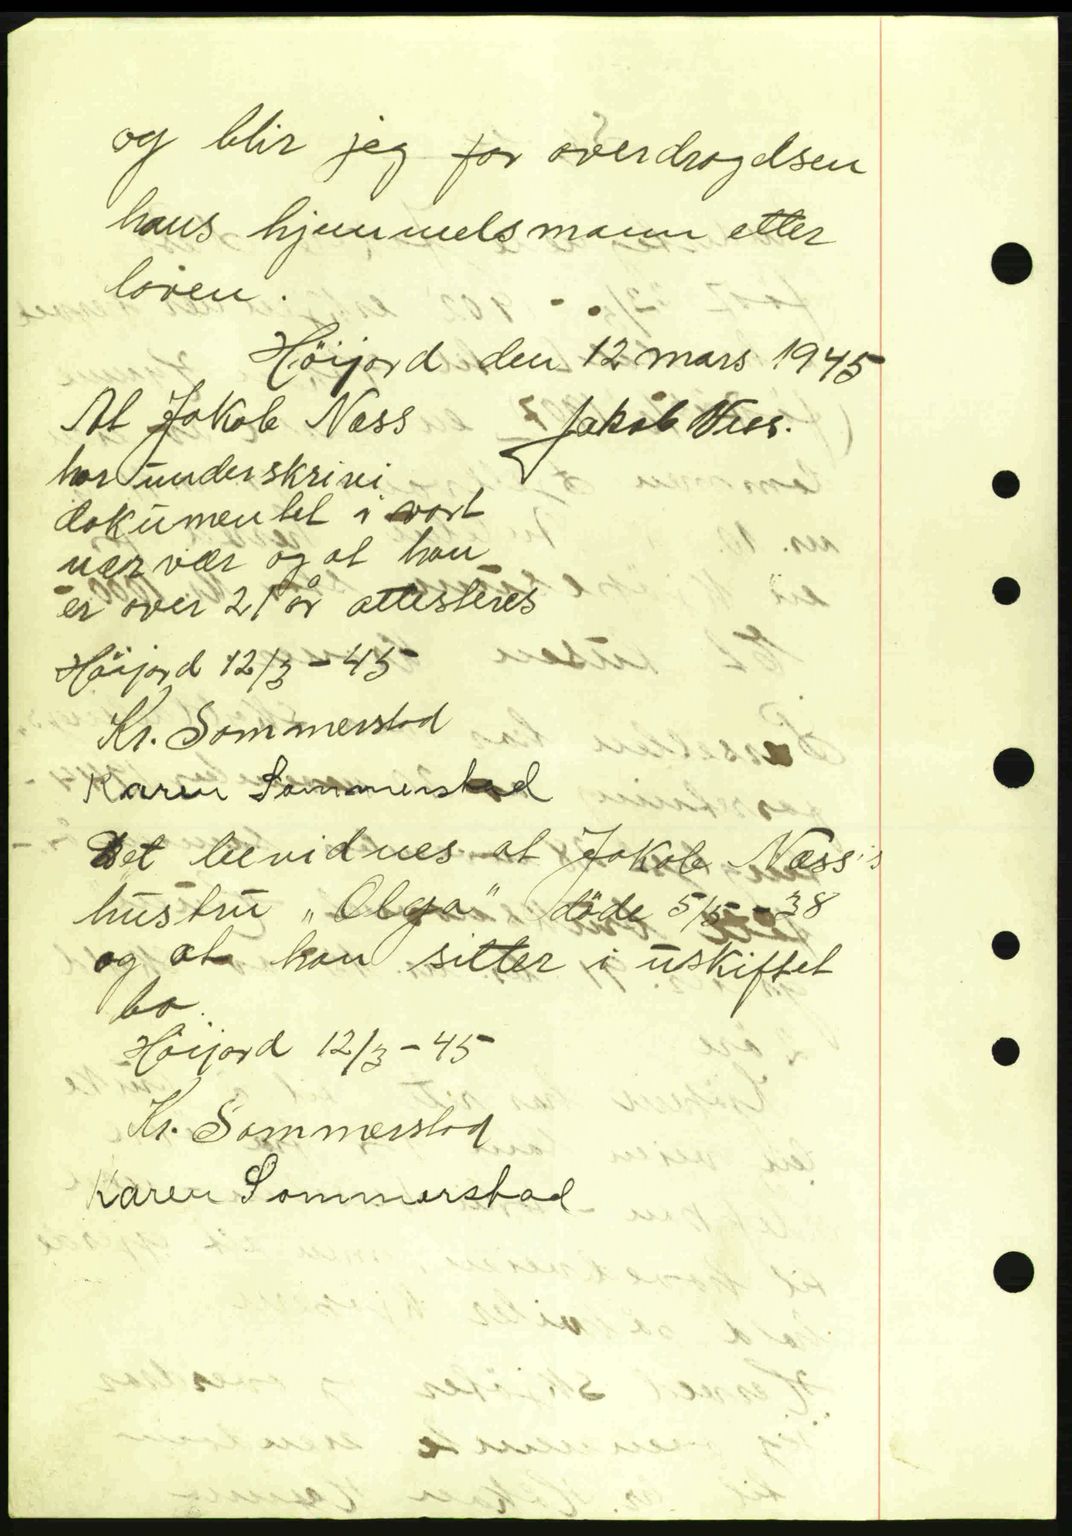 og blir jeg for overdragelsen
hans hjemmelsmann etter
loven.
Höijord den 12 mars 1945
At Jakob Næss
Jakob Næss.
har underskrivi
dokumentet i vort
nærvær og at han
er over 21 år attesteres
Höijord 12/3 - 45
Kr. Sommerstad
Karen Sommerstad
Det bevidnes at Jakob Næss's
hustru „Olga" döde 5/5 - 38
og at han sitter i uskiftet
bo.
Höijord 12/3 - 45
Kr. Sommerstad
Karen Sommerstad